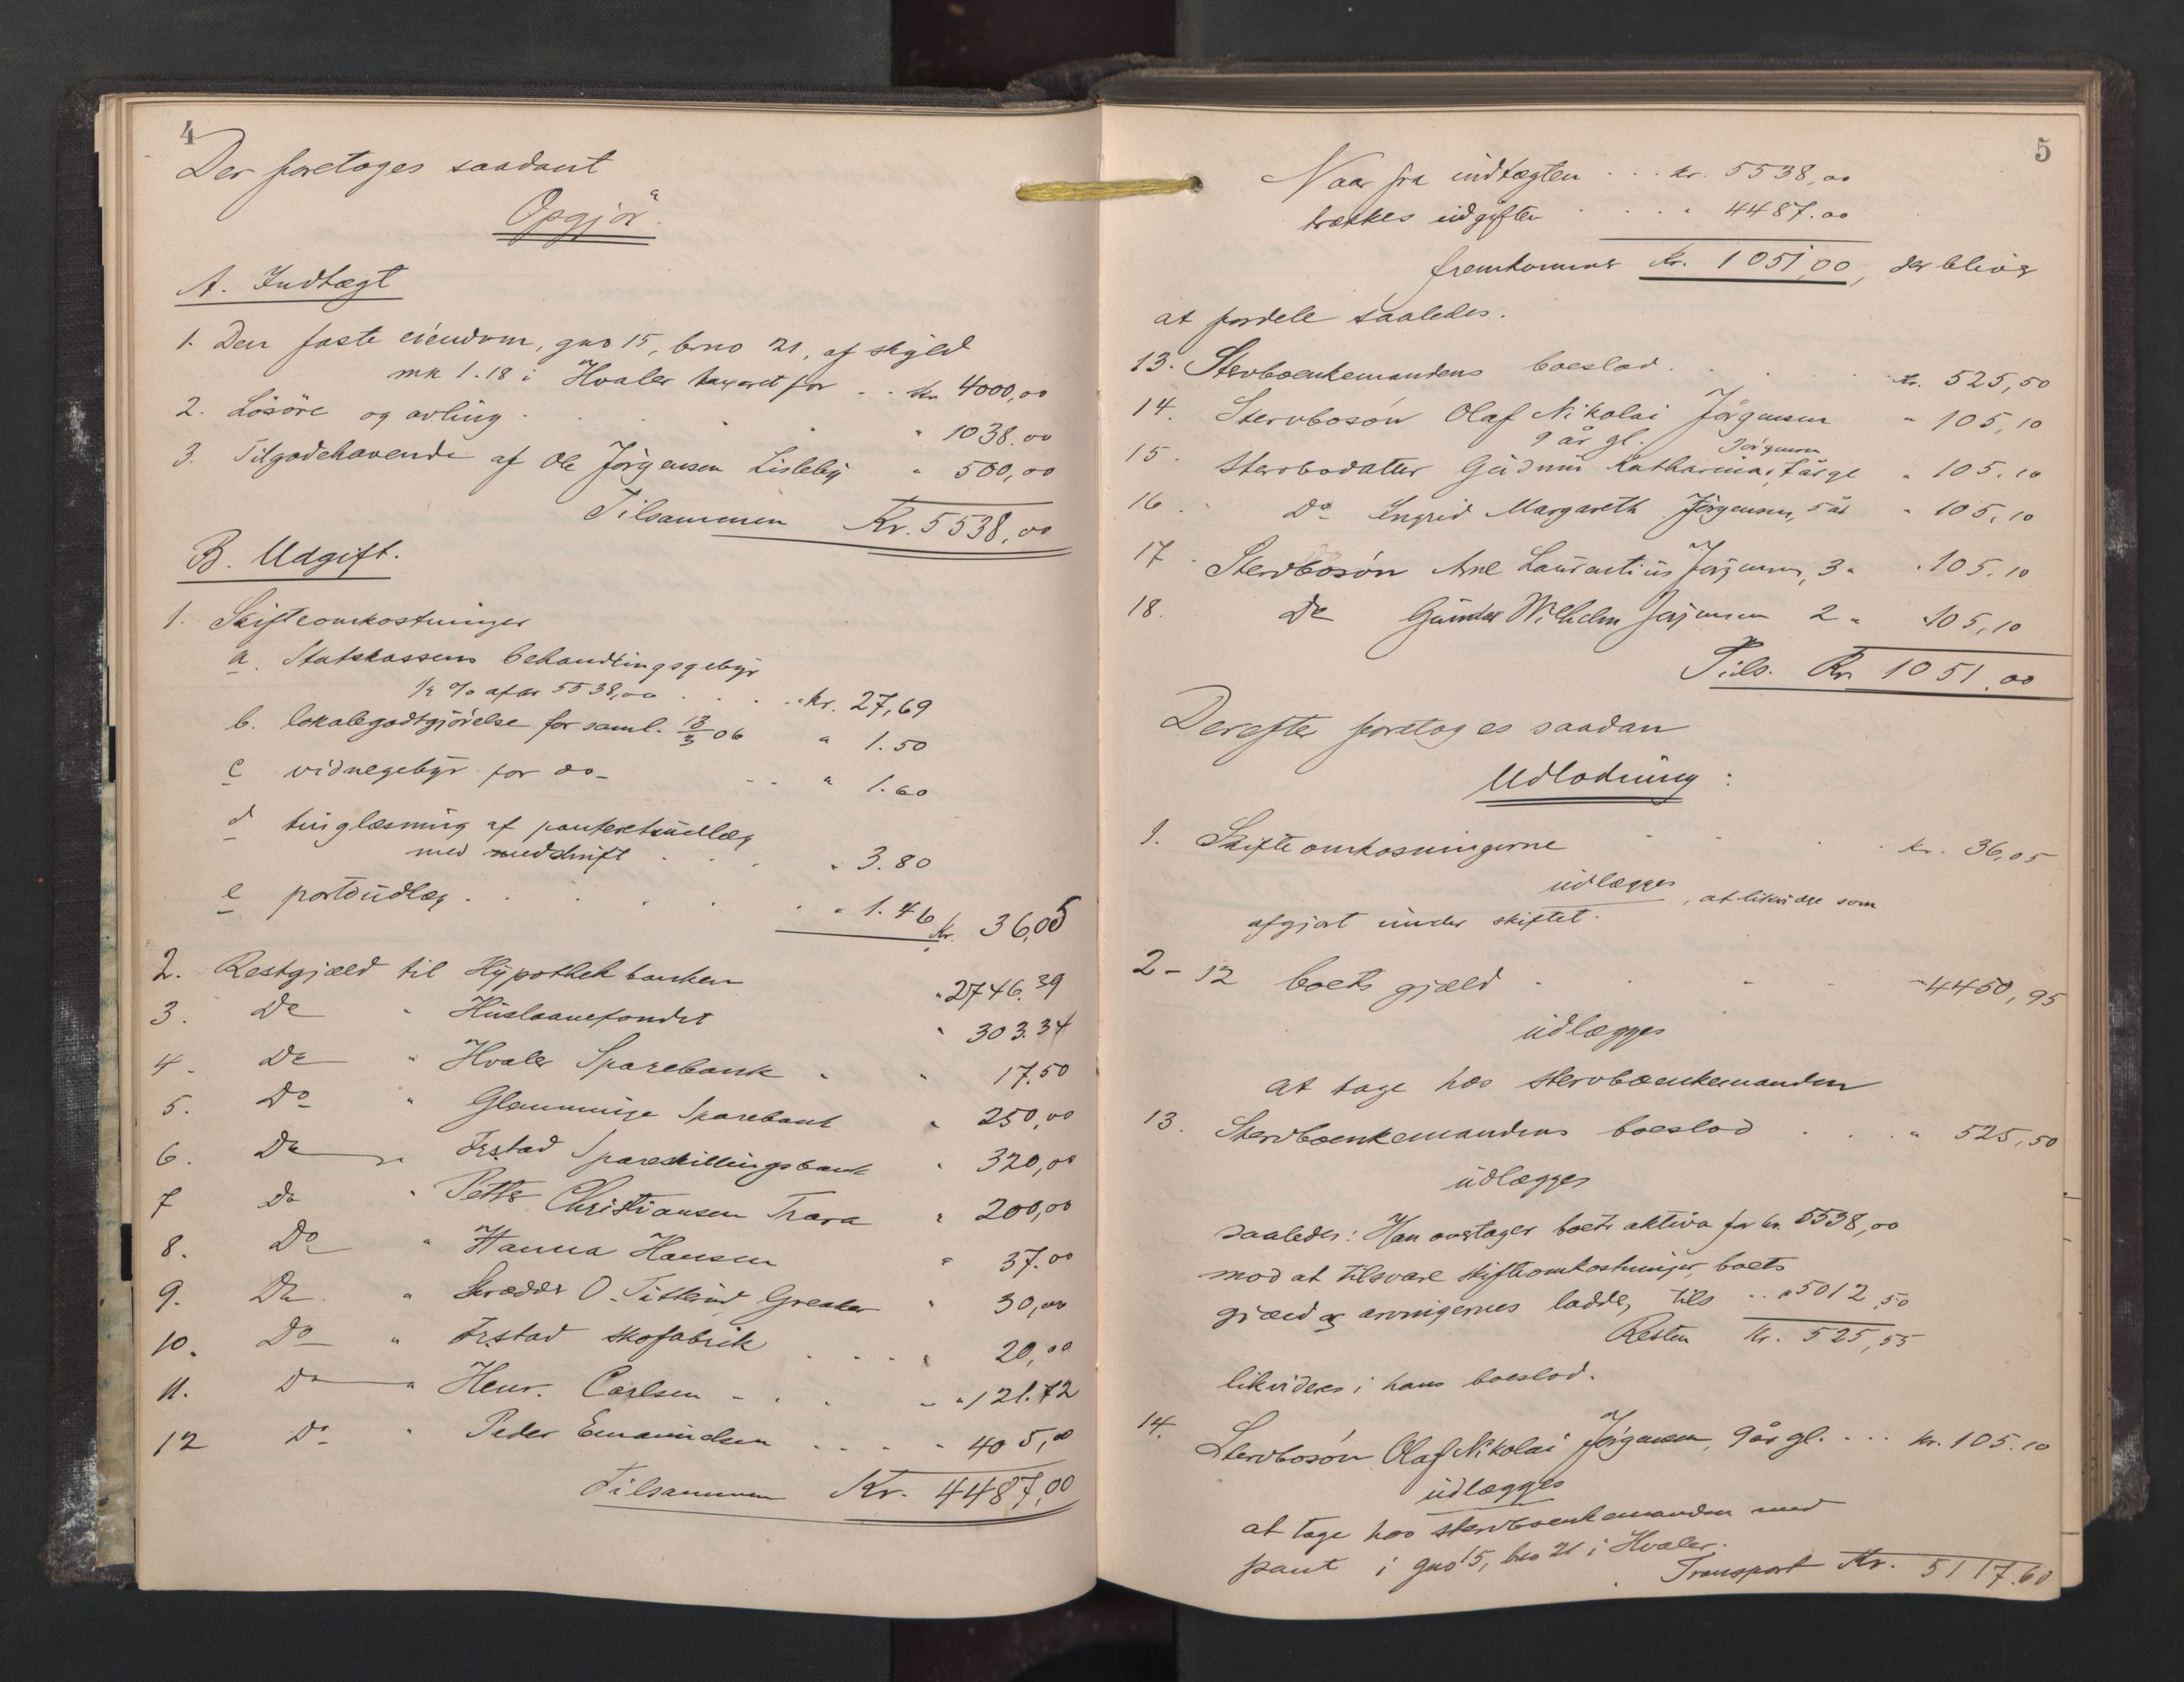 4
Der foretages saadant
Opgjör
A. Indtægt
1. Den faste eiendom, gno 15, brno 21, af skyld
mk 1.18 i Hvaler taxeret for . . kr 4000,00
2. Lösöre og avling . . . . " 1038.00
3. Tilgodehavende af Ole Jörgensen Lisleby " 500,00
Tilsammen Kr. 5538,00
B. Udgift.
1. Skifteomkostninger
a. Statskassens behandlingsgebyr
1/2 % af kr 5538,00 . . . kr. 27,69
b. lokalegodtgjörelse for saml. 13/3 06 " 1.50
c vidnegebyr for do - . . " 1.60
d tinglæsning af panteretsudlæg
med medskrift . . . " 3.80
e portoudlæg . . . . . " 1.46
Kr. 36,05
2. Restgjæld til Hypothekbanken " 2746.39
3. Do " Huslaanefondet " 303.34
4. Do " Hvaler Sparebank . " 17.50
5. Do " Glemminge Sparebank " 250,00
6. Do " Frstad Spareskillingsbank " 320,00
7 Do " Petter Christiansen Trara " 200,00
8. Do " Hanna Hansen " 37.00
9. Do " Skrædder O. Titterud Greaker " 30,00
10. Do " Frstad skofabrik . . . " 20,00
11. Do " Henr. Carlsen - . . " 121.72
12 Do " Peder Emanuelsen . . . " 405,00
Tilsammen Kr. 4487,00
5
Naar fra indtægten . . . kr. 5538,00
trækkes udgiften . . . " 4487.00
fremkommer Kr. 1051,00, der bliver
at fordele saaledes.
13. Stervboenkemandens boeslod . . . . kr. 525,50
14. Stervbosön Olaf Nikolai Jörgensen " 105,10
9 år gl. Jörgensen
15. Stervbodatter Gudrun Katharina, " 105.10
16. Do Ingrid Margareth Jörgensen, 5 år " 105,10
17. Stervbosön Arne Laurantius Jörgensen, 3 " " 105.10
18. Do Gunder Wilhelm Jörgensen 2 " " 105,10
Tils. Kr. 1051.00
Derefter foretages saadan
Udlodning:
1. Skifteomkosningerne . . . . kr. 36,05
udlægges, at likvidere som
afgjort under skiftet.
2-12 boets gjæld . . . . " 4450,95
udlægges
at tage hos stervboenkemanden
13. Stervboenkemandens boeslod . . . " 525,50
udlægges
saaledes: Han overtager boets aktiva for kr. 5538,00
mod at tilsvare skifteomkostninger, boets
gjæld og arvingernes lodder, tils . . " 5012,50
Resten Kr. 525,55
likvideres i hans boeslod.
14. Stervbosön Olaf Nikolai Jörgensen, 9 år gl. . . . kr. 105.10
udlægges
at tage hos stervboenkemanden med
pant i gno 15, bno 21 i Hvaler.
Transport Kr. 5117.60